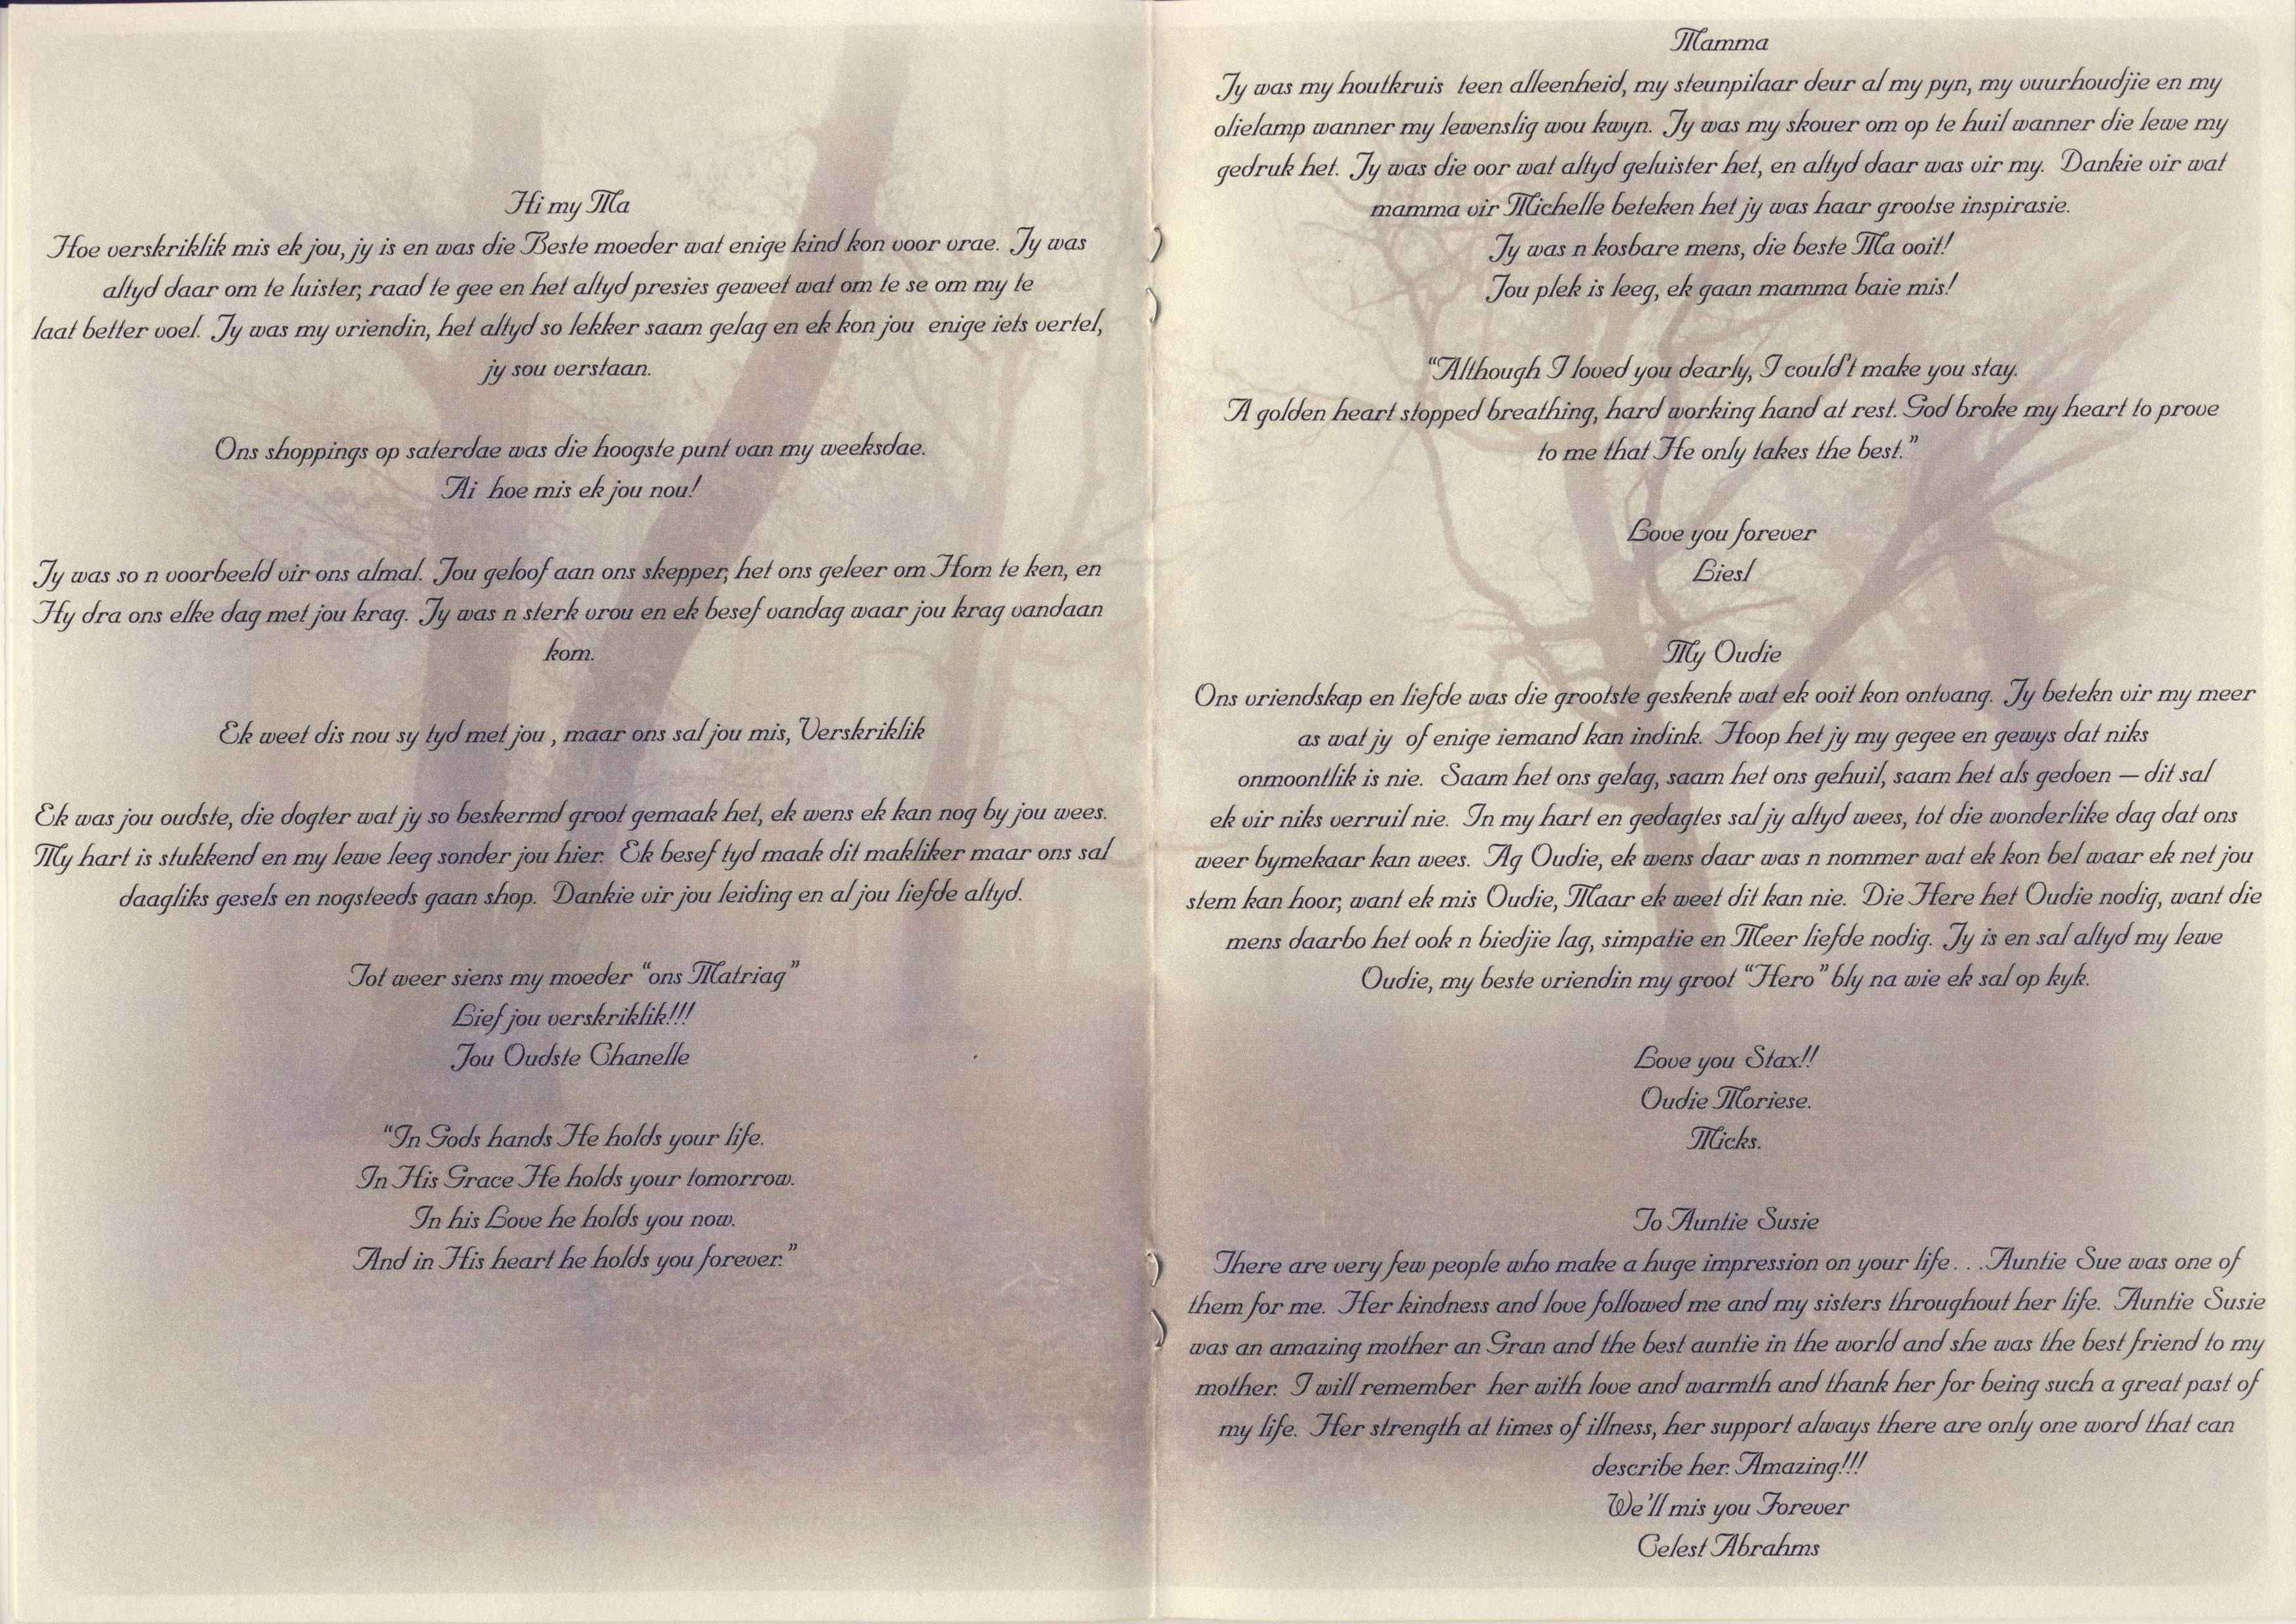 Hi my Ma
Hoe verskriklik mis ek jou, jy is en was die Beste moeder wat enige kind kon voor vrae. Jy was
altyd daar om te luister, raad te gee en het altyd presies geweet wat om te se om my te
laat better voel. Jy was my vriendin, het altyd so lekker saam gelag en ek kon jou enige iets vertel,
jy sou verstaan.
Ons shoppings op saterdae was die hoogste punt van my weeksdae.
Ai hoe mis ek jou nou!
Jy was so n voorbeeld vir ons almal. Jou geloof aan ons skepper, het ons geleer om Hom te ken, en
Hy dra ons elke dag met jou krag. Jy was n sterk vrou en ek besef vandag waar jou krag vandaan
kom.
Ek weet dis nou sy tyd met jou , maar ons sal jou mis, Verskriklik
Ek was jou oudste, die dogter wat jy so beskermd groot gemaak het, ek wens ek kan nog by jou wees.
My hart is stukkend en my lewe leeg sonder jou hier. Ek besef tyd maak dit makliker maar ons sal
daagliks gesels en nogsteeds gaan shop. Dankie vir jou leiding en al jou liefde altyd.
Tot weer siens my moeder “ons Matriag”
Lief jou verskriklik!!!
Jou Oudste Chanelle
“In Gods hands He holds your life.
In His Grace He holds your tomorrow.
In his Love he holds you now.
And in His heart he holds you forever.”
Mamma
Jy was my houtkruis teen alleenheid, my steunpilaar deur al my pyn, my vuurhoudjie en my
olielamp wanner my lewenslig wou kwyn. Jy was my skouer om op te huil wanner die lewe my
gedruk het. Jy was die oor wat altyd geluister het, en altyd daar was vir my. Dankie vir wat
mamma vir Michelle beteken het jy was haar grootse inspirasie.
Jy was n kosbare mens, die beste Ma ooit!
Jou plek is leeg, ek gaan mamma baie mis!
“Although I loved you dearly, I could't make you stay.
A golden heart stopped breathing, hard working hand at rest. God broke my heart to prove
to me that He only takes the best.”
Love you forever
Liesl
My Oudie
Ons vriendskap en liefde was die grootste geskenk wat ek ooit kon ontvang. Jy betekn vir my meer
as wat jy of enige iemand kan indink. Hoop het jy my gegee en gewys dat niks
onmoontlik is nie. Saam het ons gelag, saam het ons gehuil, saam het als gedoen — dit sal
ek vir niks verruil nie. In my hart en gedagtes sal jy altyd wees, tot die wonderlike dag dat ons
weer bymekaar kan wees. Ag Oudie, ek wens daar was n nommer wat ek kon bel waar ek net jou
stem kan hoor, want ek mis Oudie, Maar ek weet dit kan nie. Die Here het Oudie nodig, want die
mens daarbo het ook n biedjie lag, simpatie en Meer liefde nodig. Jy is en sal altyd my lewe
Oudie, my beste vriendin my groot “Hero” bly na wie ek sal op kyk.
Love you Stax!!
Oudie Moriese.
Micks.
To Auntie Susie
There are very few people who make a huge impression on your life. . .Auntie Sue was one of
them for me. Her kindness and love followed me and my sisters throughout her life. Auntie Susie
was an amazing mother an Gran and the best auntie in the world and she was the best friend to my
mother. I will remember her with love and warmth and thank her for being such a great past of
my life. Her strength at times of illness, her support always there are only one word that can
describe her. Amazing!!!
We'll mis you Forever
Celest Abrahms